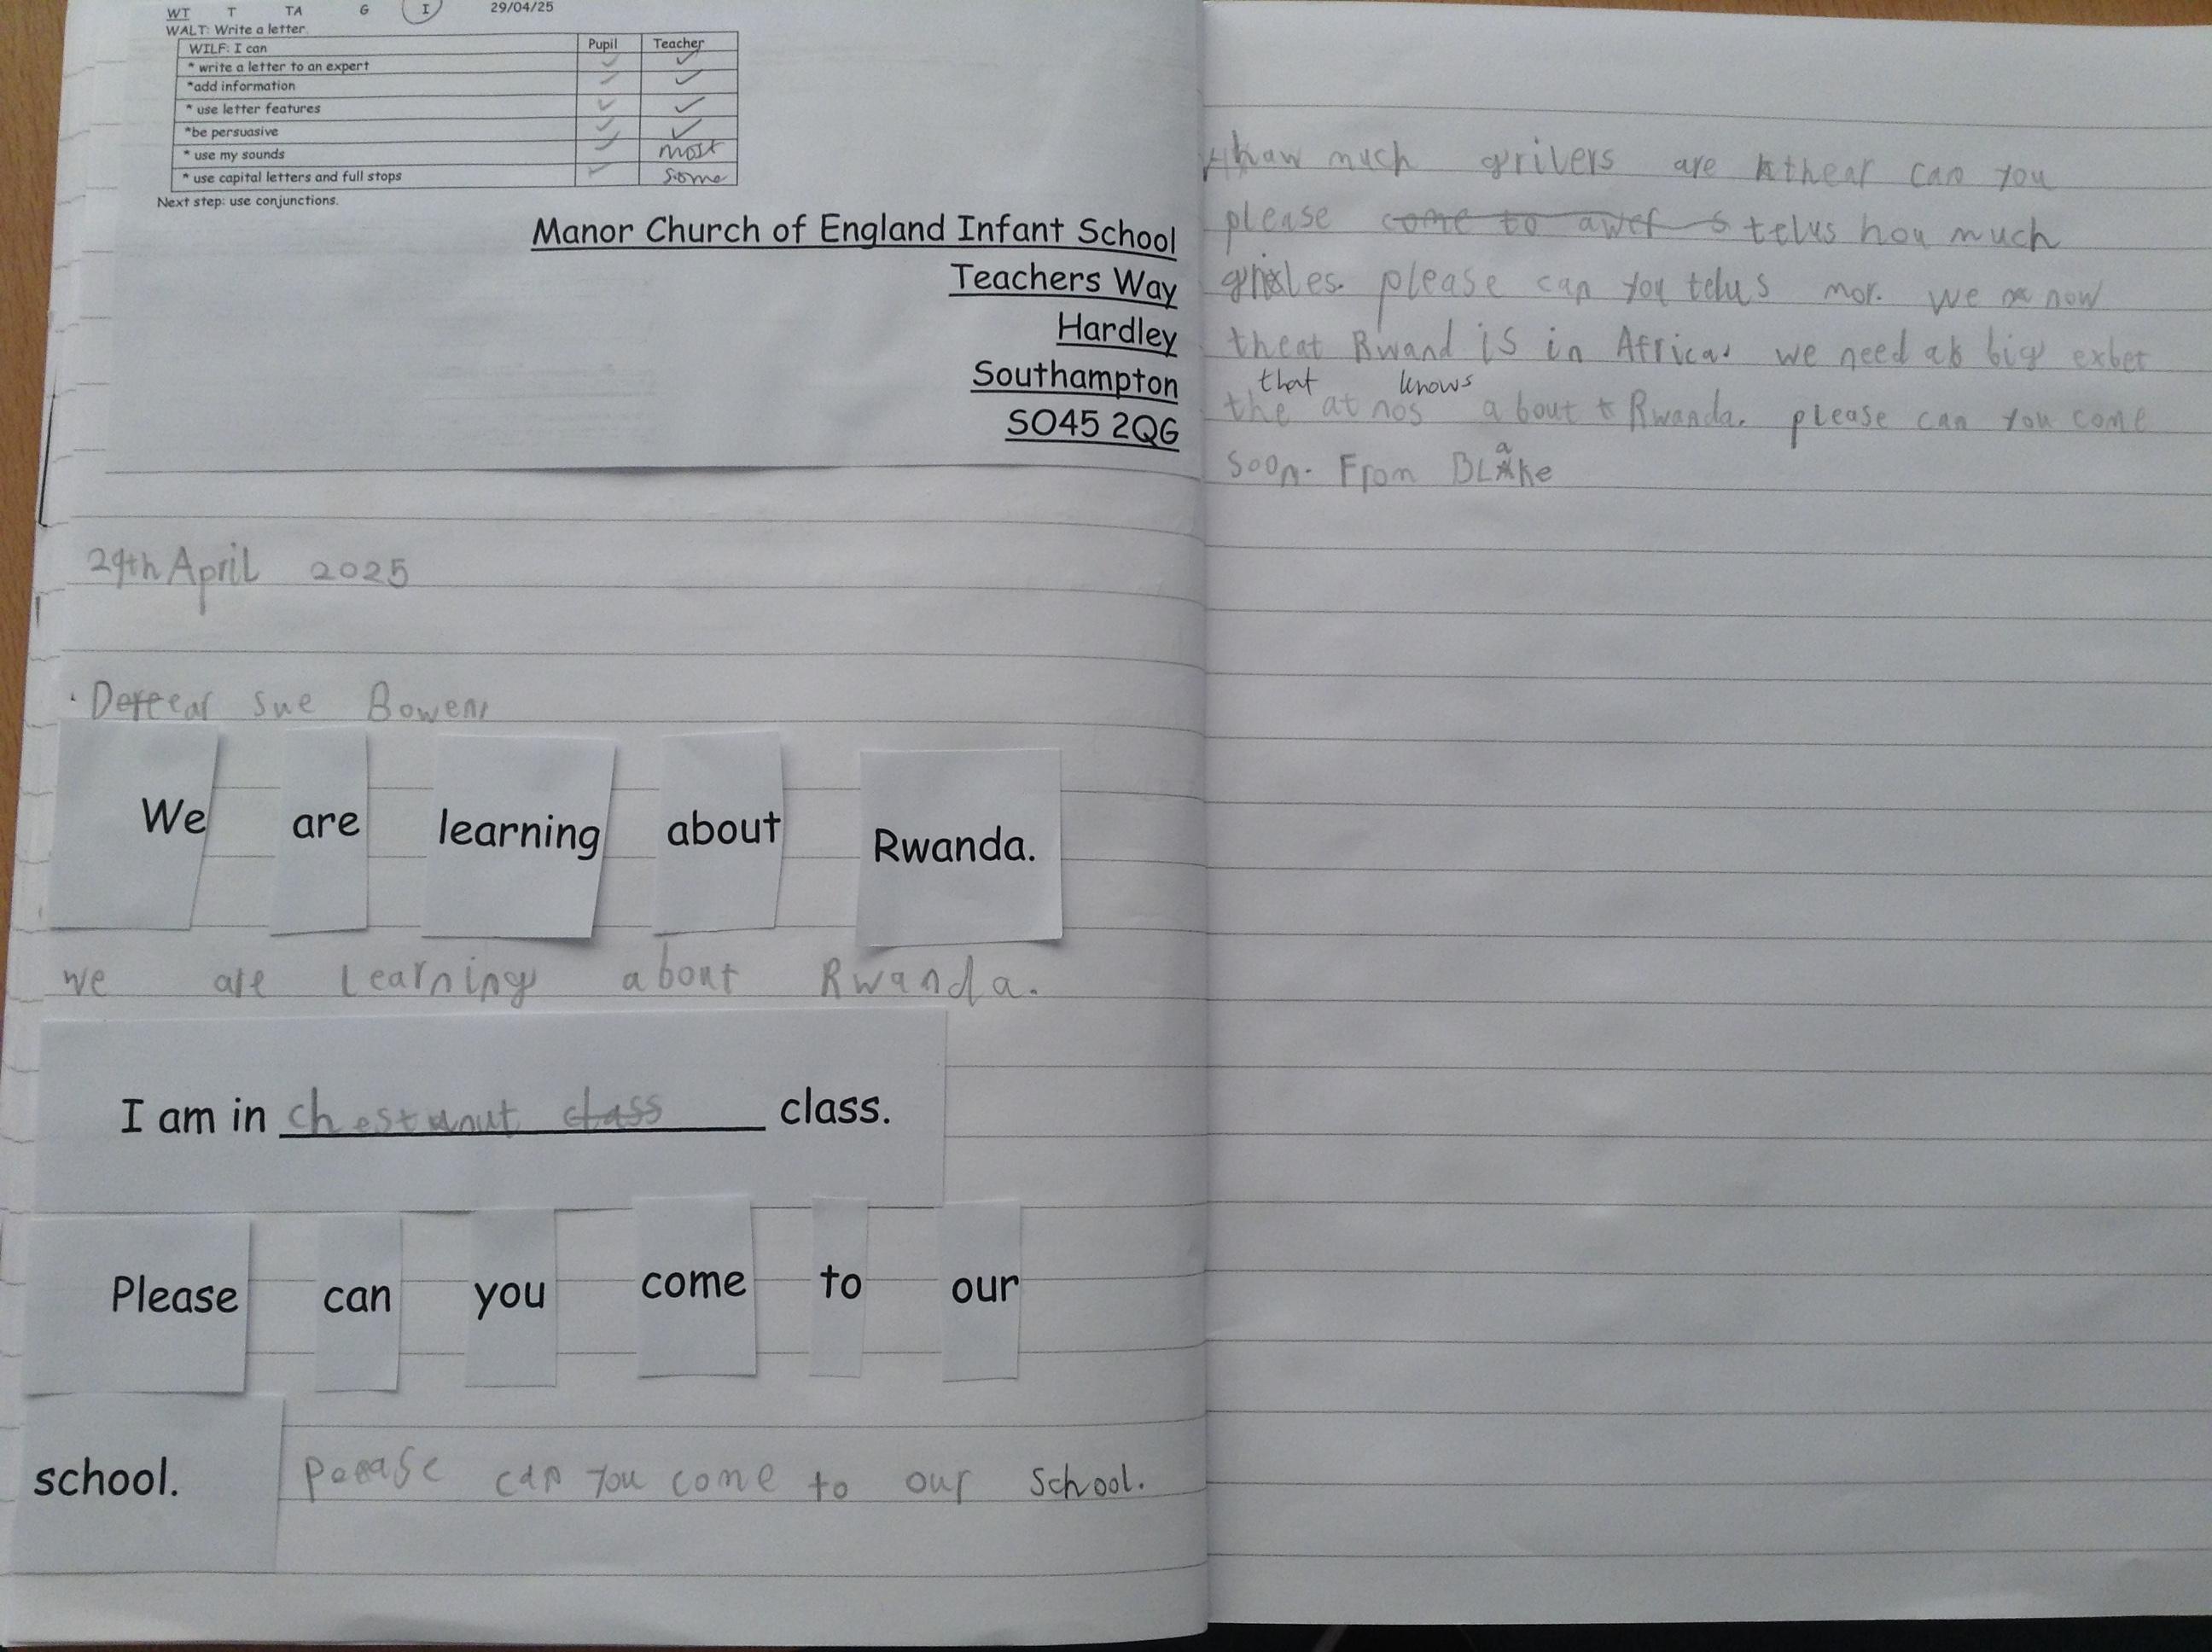 WT T TA G I 29/04/25
WALT: Write a letter.
WILF: I can Pupil Teacher
* write a letter to an expert ✓ ✓
*add information ✓ ✓
* use letter features ✓ ✓
*be persuasive ✓ ✓
* use my sounds ✓ most
* use capital letters and full stops ✓ some
Next step: use conjunctions.
Manor Church of England Infant School
Teachers Way
Hardley
Southampton
SO45 2QG
29th April 2025
sue Bowen,
We are learning about Rwanda.
we are learning about Rwanda.
I am in chestnut class class.
Please can you come to our
school.
can you come to our school.
haw much grilers are thear can you
please come to telus hou much
please can you telus mor. we now
theat Rwand is in Africa. we need a big exbet
that knows
the at nos about Rwanda. please can you come
soon. From BLake